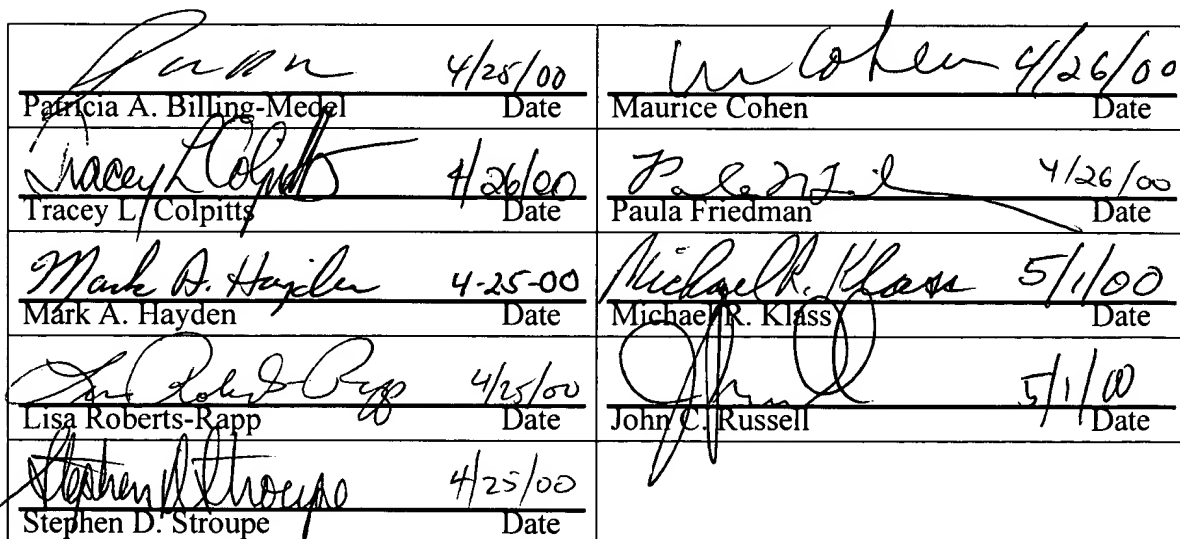 4/25/00
Patricia A. Billing-Medel Date
Cohen 4/26/00
Maurice Cohen Date
Tracey L Colpitts 4/26/00
Tracey L. Colpitts Date
4/26/00
Paula Friedman Date
Mark A. Hayden 4-25-00
Mark A. Hayden Date
Michael R. Klass 5/1/00
Michael R. Klass Date
Lisa Roberts-Rapp 4/25/00
Lisa Roberts-Rapp Date
5/1/00
John C. Russell Date
Stephen D Stroupe 4/25/00
Stephen D. Stroupe Date